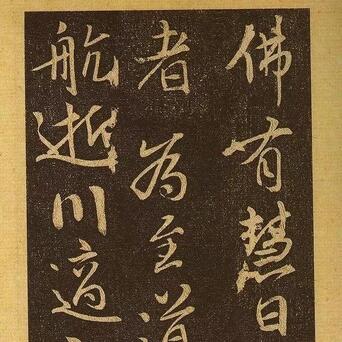 佛有慧日
者为至道
航逝川適